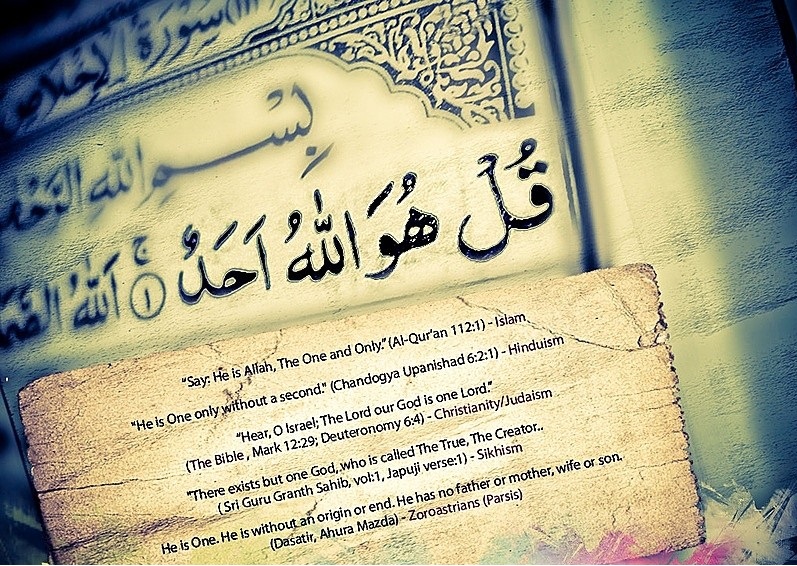 سُورَةُ الْإِخْلَاصِ
بِسْمِ اللهِ
قُلْ هُوَ اللّٰهُ اَحَدٌ ۚ ١ اَللّٰهُ
"Say: He is Allah, The One and Only." (Al-Qur'an 112:1) - Islam
"He is One only without a second." (Chandogya Upanishad 6:2:1) - Hinduism
"Hear, O Israel; The Lord our God is one Lord."
(The Bible , Mark 12:29; Deuteronomy 6:4) - Christianity/Judaism
"There exists but one God, who is called The True, The Creator..
( Sri Guru Granth Sahib, vol:1, Japuji verse:1) - Sikhism
He is One. He is without an origin or end. He has no father or mother, wife or son.
(Dasatir, Ahura Mazda) - Zoroastrians (Parsis)